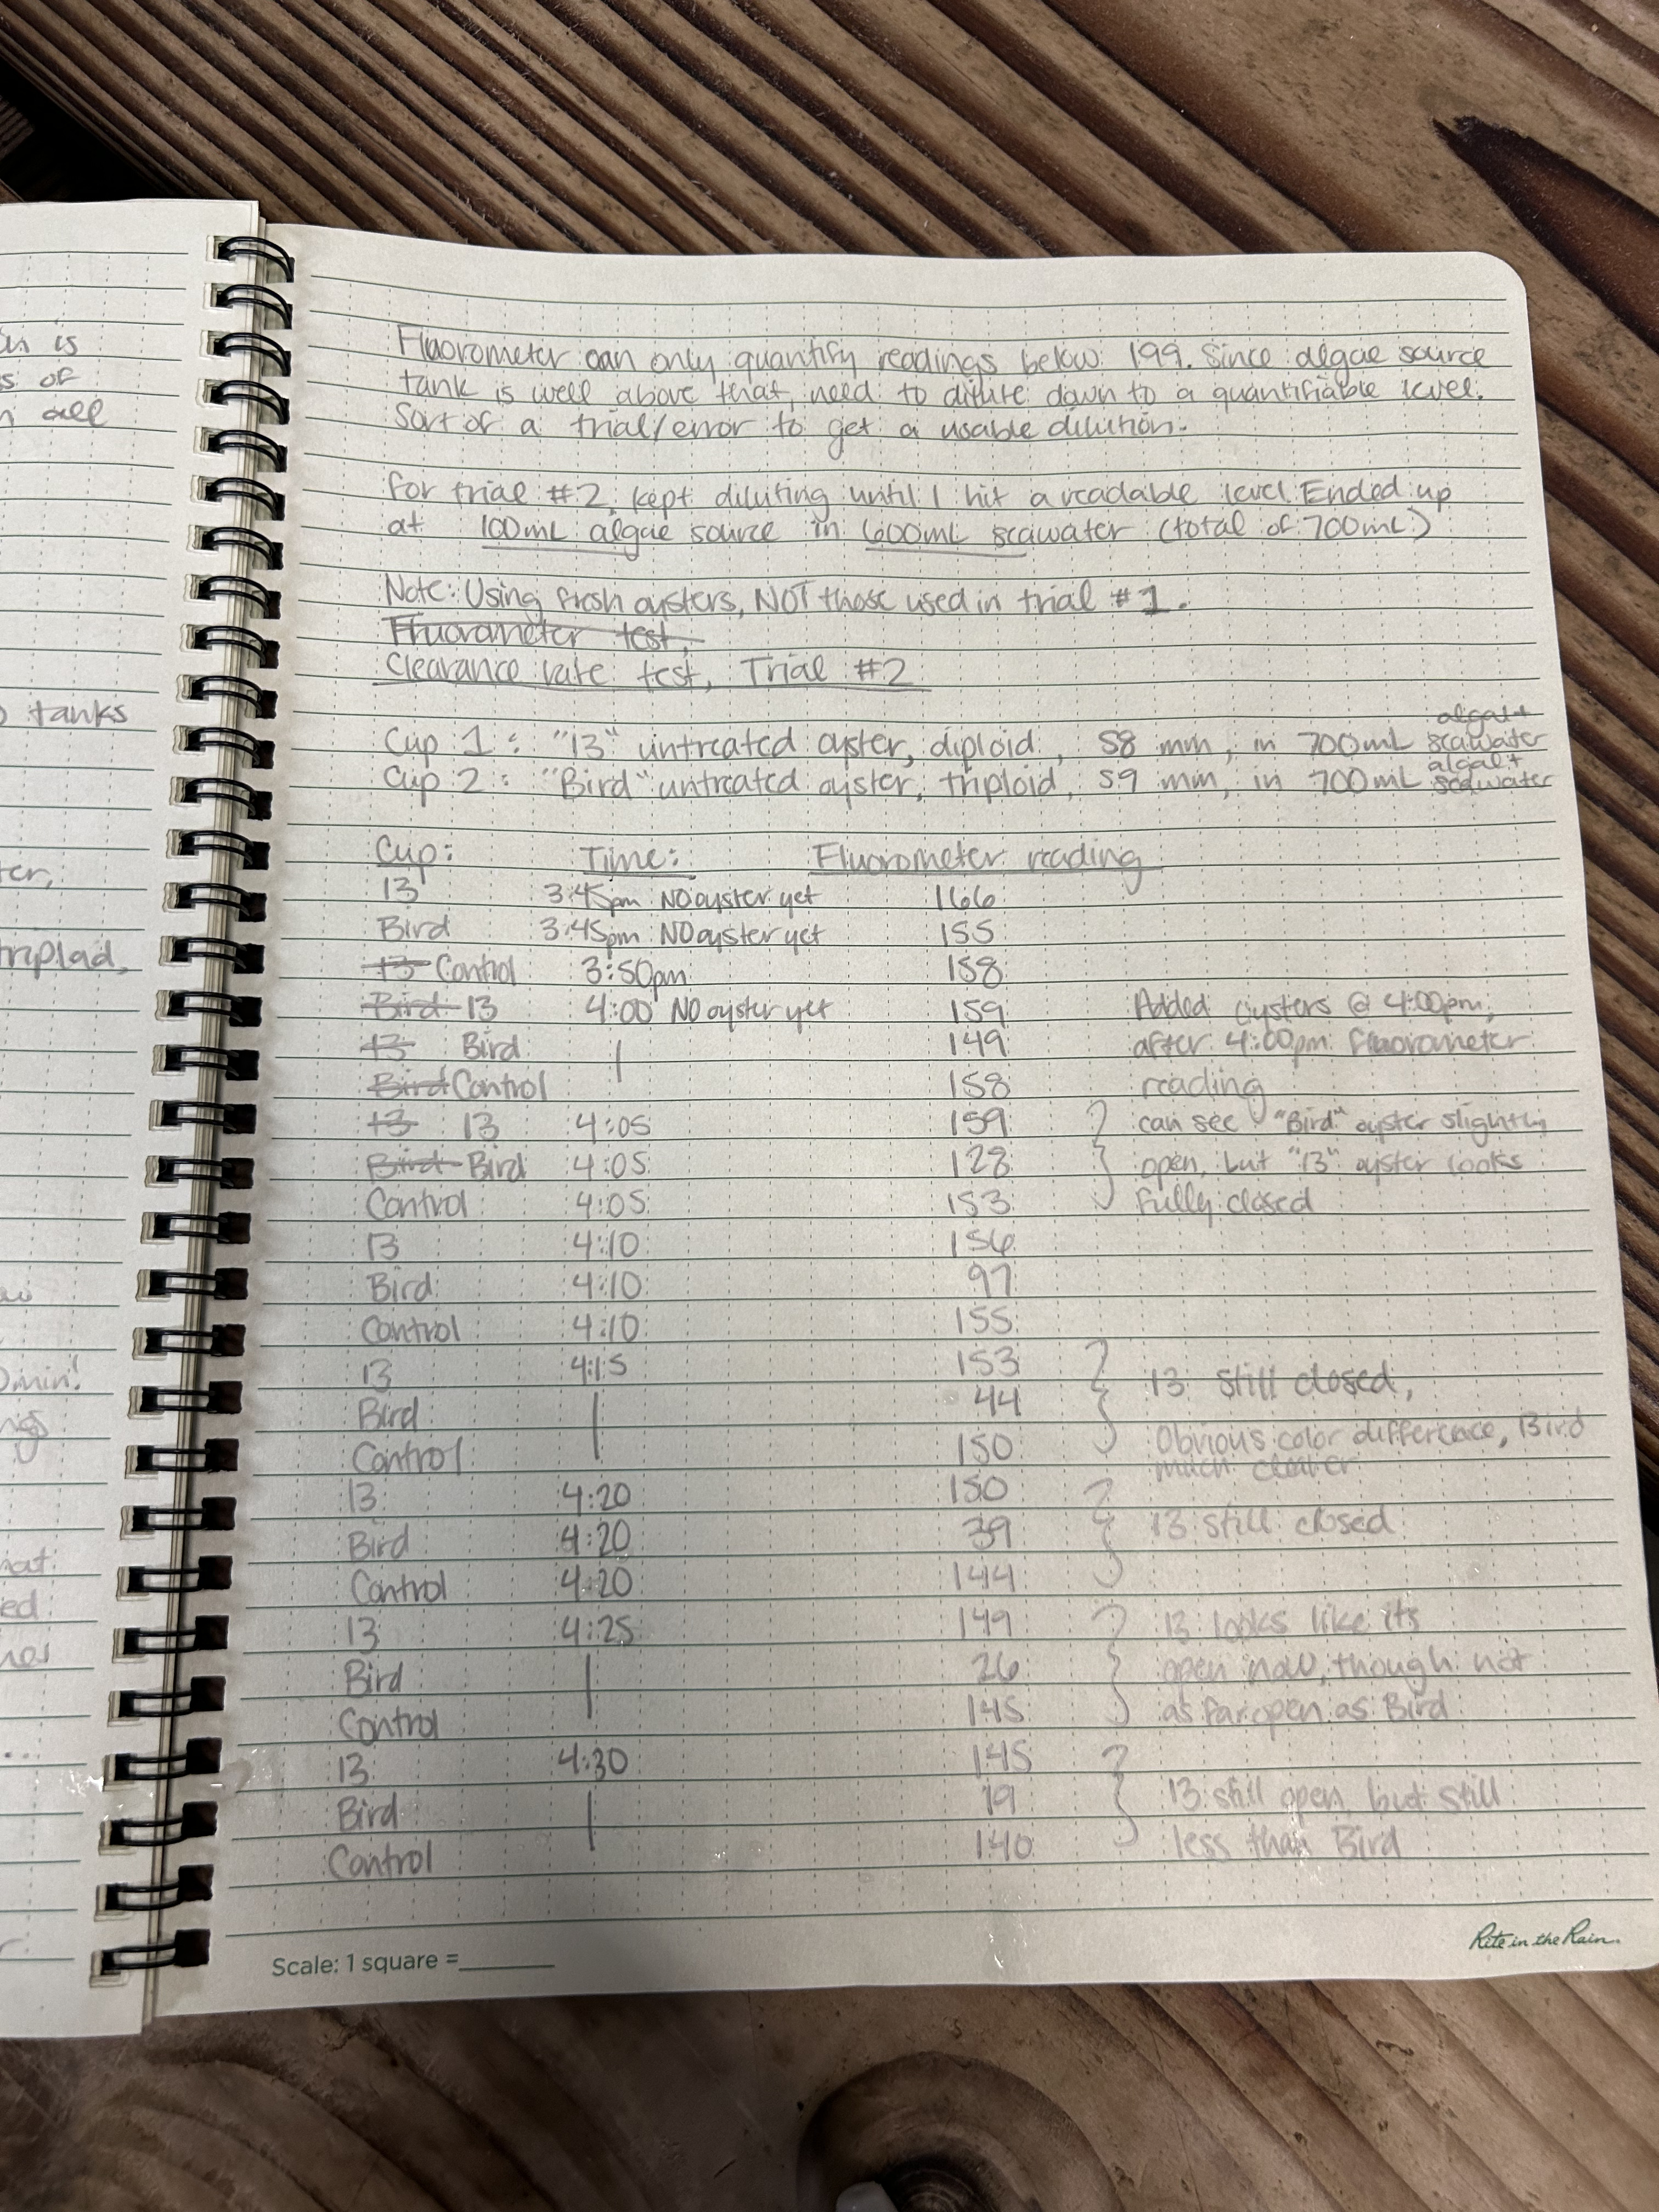 un is
s of
n all
o tanks
ter,
triplad,
0min!
ngs
nat
ed
Fluorometer can only quantify readings below 199. Since algae source
tank is well above that, need to dilute down to a quantifiable level.
Sort of a trial/error to get a usable dilution.
For trial #2, kept diluting until I hit a readable level. Ended up
at 100mL algae source in 600mL seawater (total of 700mL)
Note: Using fresh oysters, NOT those used in trial #1.
Fluorometer test,
Clearance rate test, Trial #2
Cup 1: "13" untreated oyster, diploid, 58 mm, in 700mL algal + seawater
Cup 2: "Bird" untreated oyster, triploid, 59 mm, in 700mL algal + seawater
Cup: Time: Fluorometer reading
13 3:45pm NO oyster yet 166
Bird 3:45pm NO oyster yet 155
13 Control 3:50pm 158
Bird 13 4:00 NO oyster yet 159 Added oysters @ 4:00pm,
13 Bird | 149 after 4:00pm fluorometer
Bird Control 158 reading
13 13 4:05 159 } can see "Bird" oyster slightly
Bird Bird 4:05 128 open, but "13" oyster looks
Control 4:05 153 fully closed
13 4:10 156
Bird 4:10 97
Control 4:10 155
13 4:15 153 } 13 still closed,
Bird | 44
Control 150 Obvious color difference, Bird
much clearer
13 4:20 150 }
Bird 4:20 39 13 still closed
Control 4:20 144
13 4:25 149 } 13 looks like its
Bird | 26 open now, though not
Control 145 as far open as Bird
13 4:30 145 }
Bird | 19 13 still open but still
Control 140 less than Bird
Scale: 1 square =
Rite in the Rain.